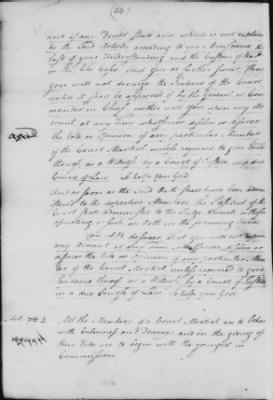 (24)
and if any Doubt shall arise which is not explained
by the said Articles according to your Conscience the
best of your Understanding and the Custom of War
in the like Cases. And you do further Swear, that
you will not divulge the Sentence of the Court,
until it shall be approved of by the General, or Com-
mander in Chief; neither will you upon any Ac-
count at any time whatsoever disclose or discover
the Vote or Opinion of any particular Member
of the Court Martial unless required to give Evidence
thereof, as a Witness by a Court of Justice in a due
Course of Law. So help you God.
And as soon as the said Oath shall have been admi-
nistered to the respective Members, the President of the
Court shall administer to the Judge Advocate or Person
officiating as such an Oath in the following Words.
You A.B. do Swear that you will not upon
any Account at any time whatsoever disclose or
discover the Vote or Opinion of any particular Mem-
ber of the Court Martial unless required to give
Evidence thereof as a Witness by a Court of Justice
in a due Course of Law. So help you God.
Art. 7th
All the Members of a Court Martial are to behave
with Calmness and Decency and in the giving of
their Votes are to begin with the youngest in
Commission